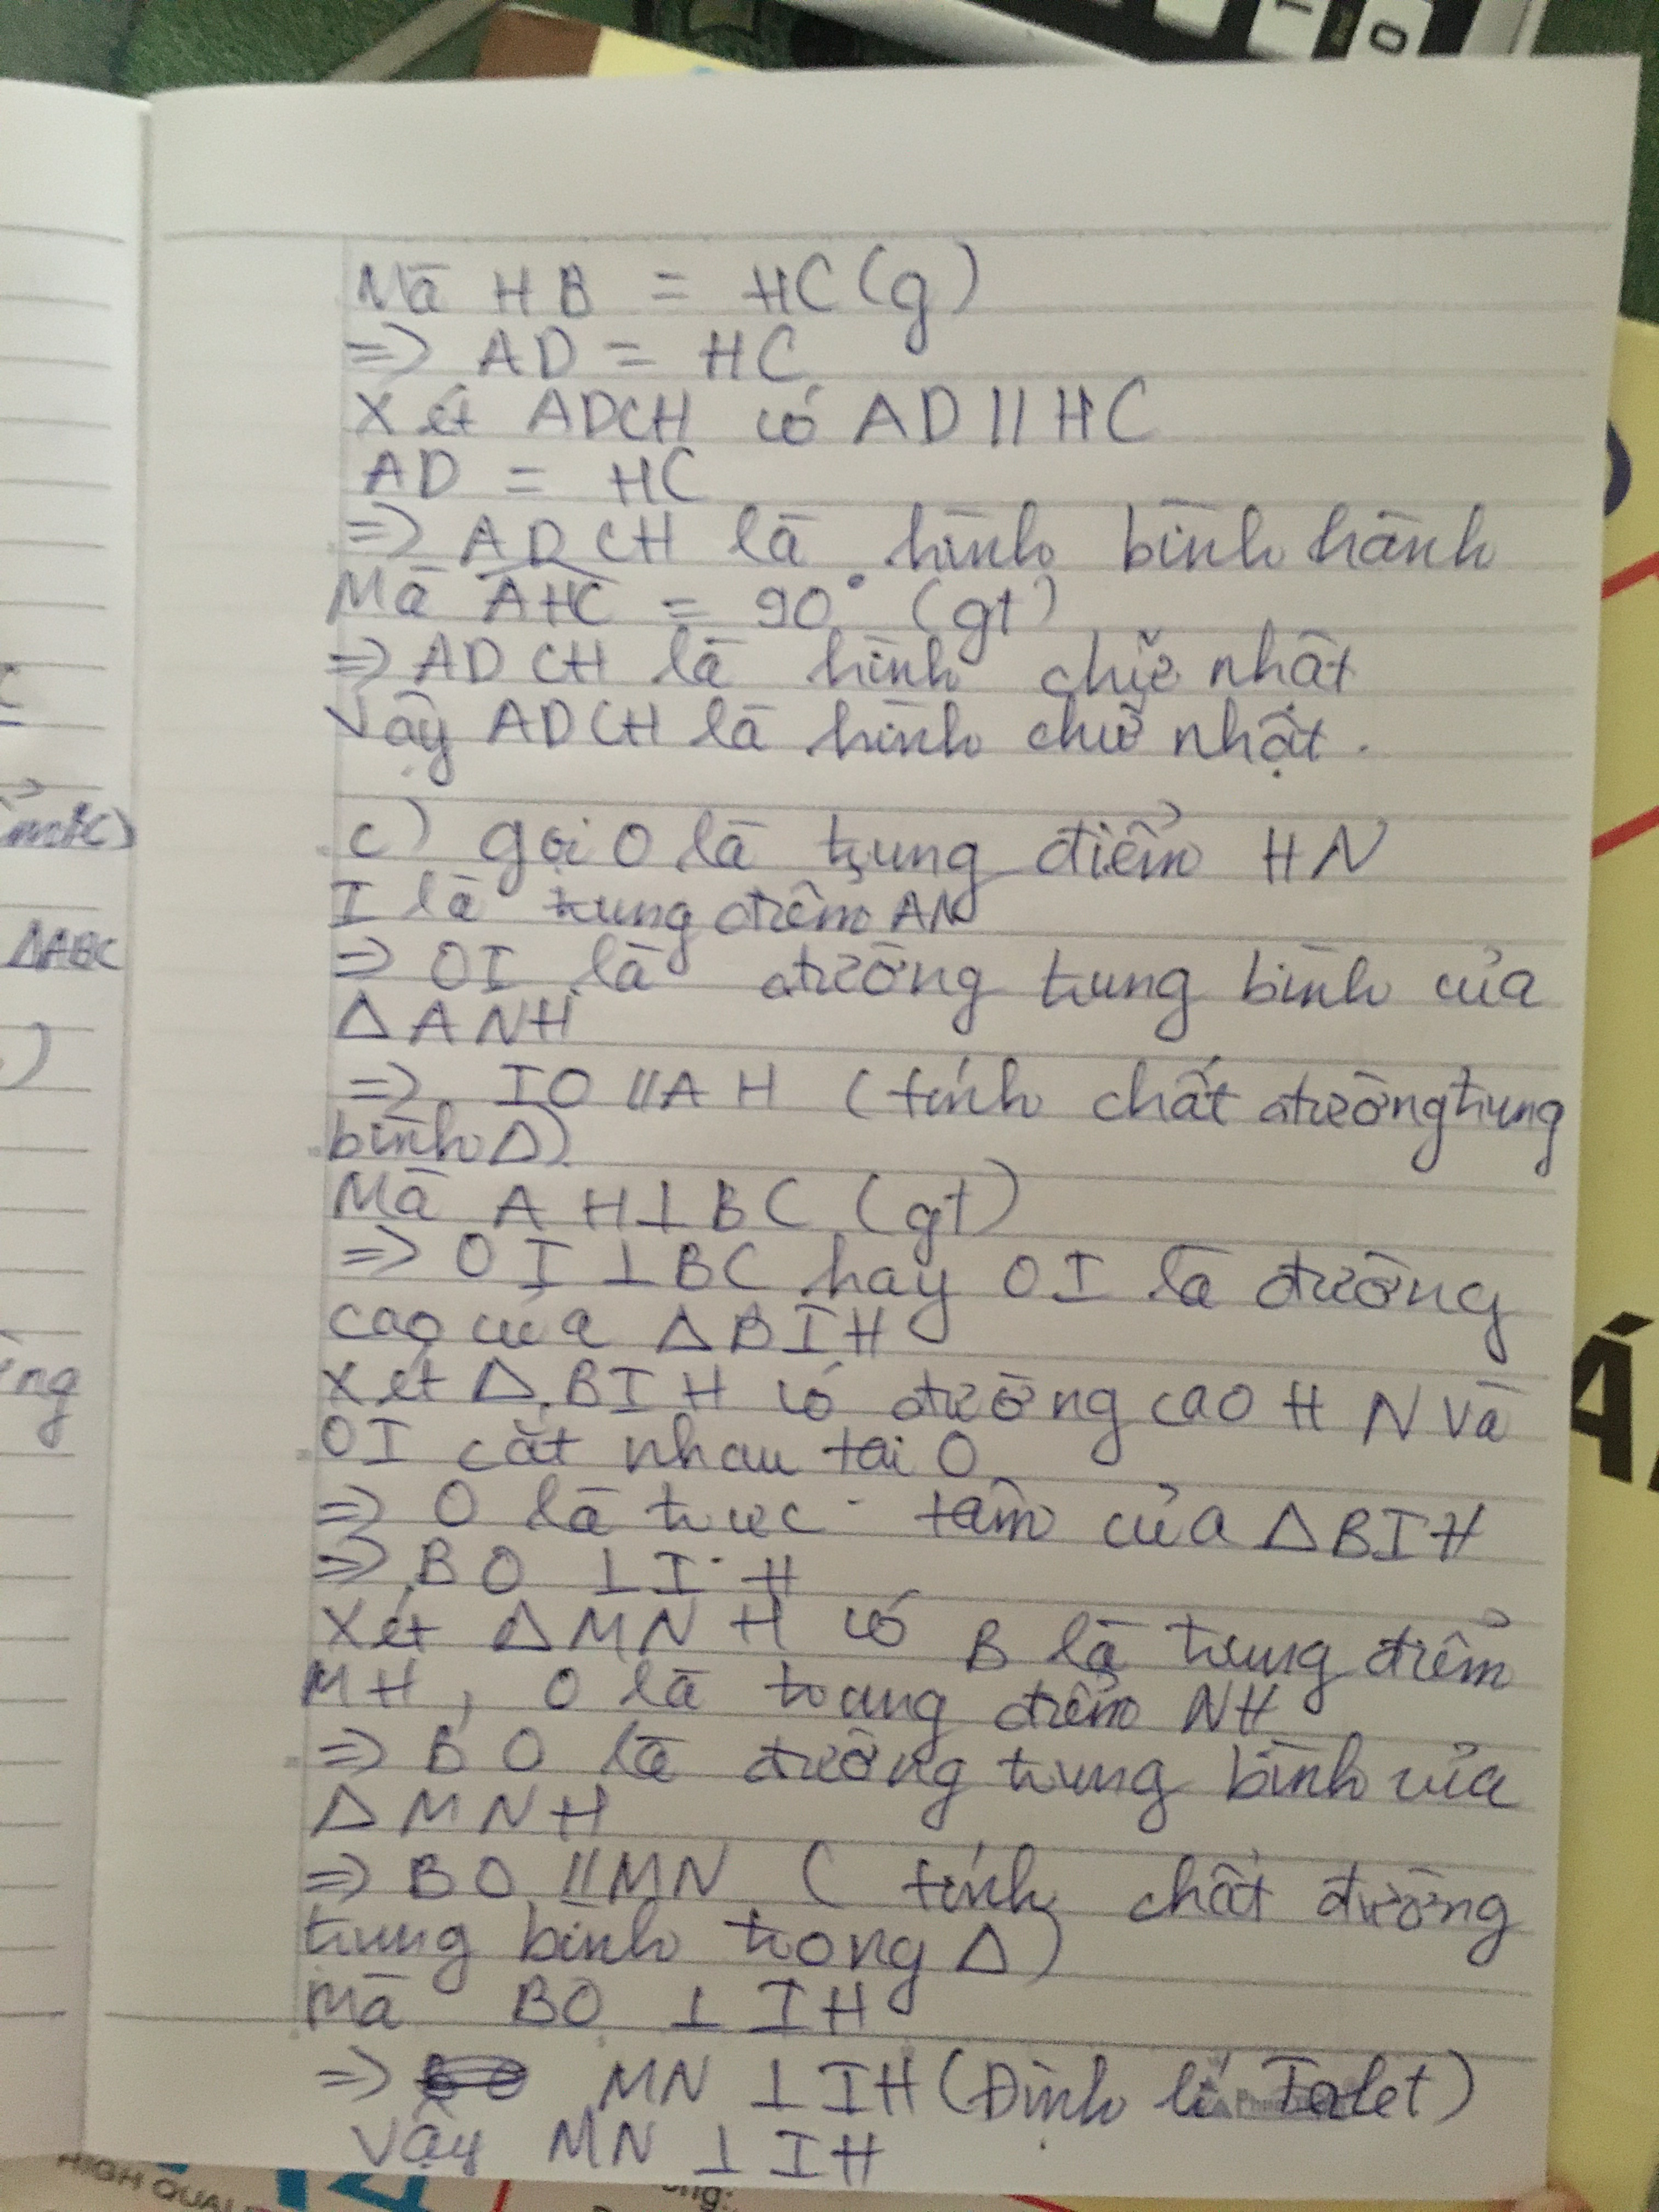 1
0
Mà HB = HC (g)
=> AD = HC
Xét ADCH có AD // HC
AD = HC
=> ADCH là hình bình hành
Mà AHC = 90° (gt)
=> ADCH là hình chữ nhật
Vậy ADCH là hình chữ nhật.
c) gọi O là trung điểm HN
I là trung điểm AN
=> OI là đường trung bình của
ΔABC
Δ ANH
=> IO // AH (tính chất đường trung
bình Δ)
Mà AH ⊥ BC (gt)
=> OI ⊥ BC hay OI là đường
cao của Δ BIH
Xét Δ BIH có đường cao HN và
OI cắt nhau tại O
=> O là trực tâm của Δ BIH
=> BO ⊥ IH
Xét Δ MNH có B là trung điểm
MH, O là trung điểm NH
=> BO là đường trung bình của
Δ MNH
=> BO // MN ( tính chất đường
trung bình trong Δ)
Mà BO ⊥ IH
=> MN ⊥ IH (Định lí Talet)
Vậy MN ⊥ IH
HIGH QUAL